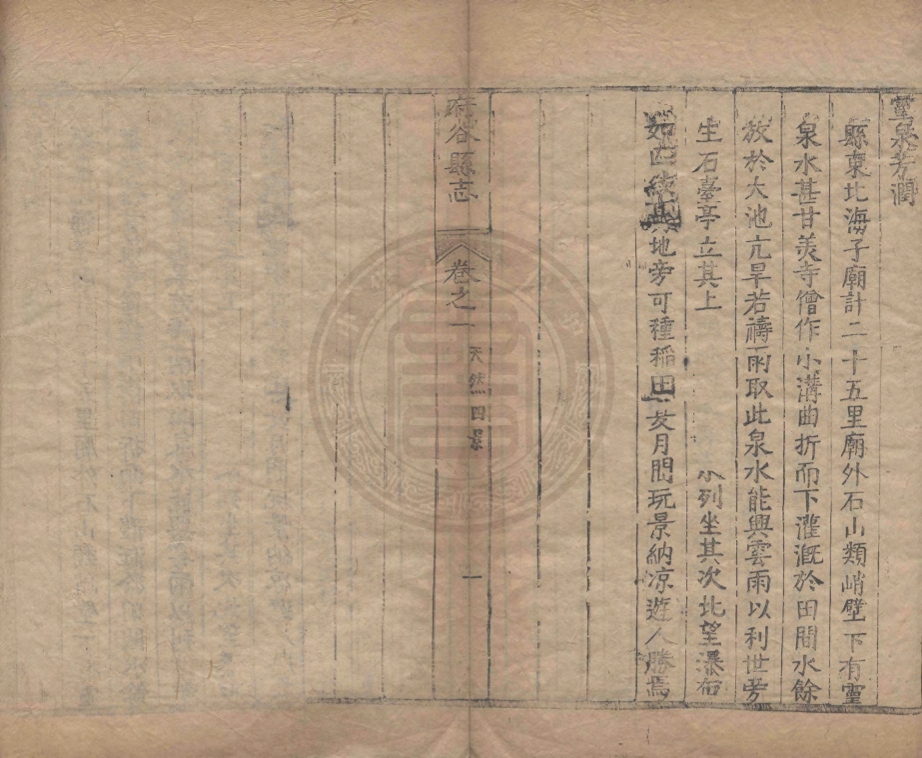 靈泉芳潤
縣東北海子廟計二十五里廟外石山類峭壁下有靈
泉水甚甘美寺僧作小溝曲折而下灌溉於田間水餘
放於大池亢旱若禱雨取此泉水能興雲雨以利世旁
生石臺亭立其上 水列坐其次北望瀑布
如匹練其地旁可種稻田 月間玩景納凉遊人勝焉
府谷縣志 卷之一 天然四景 一